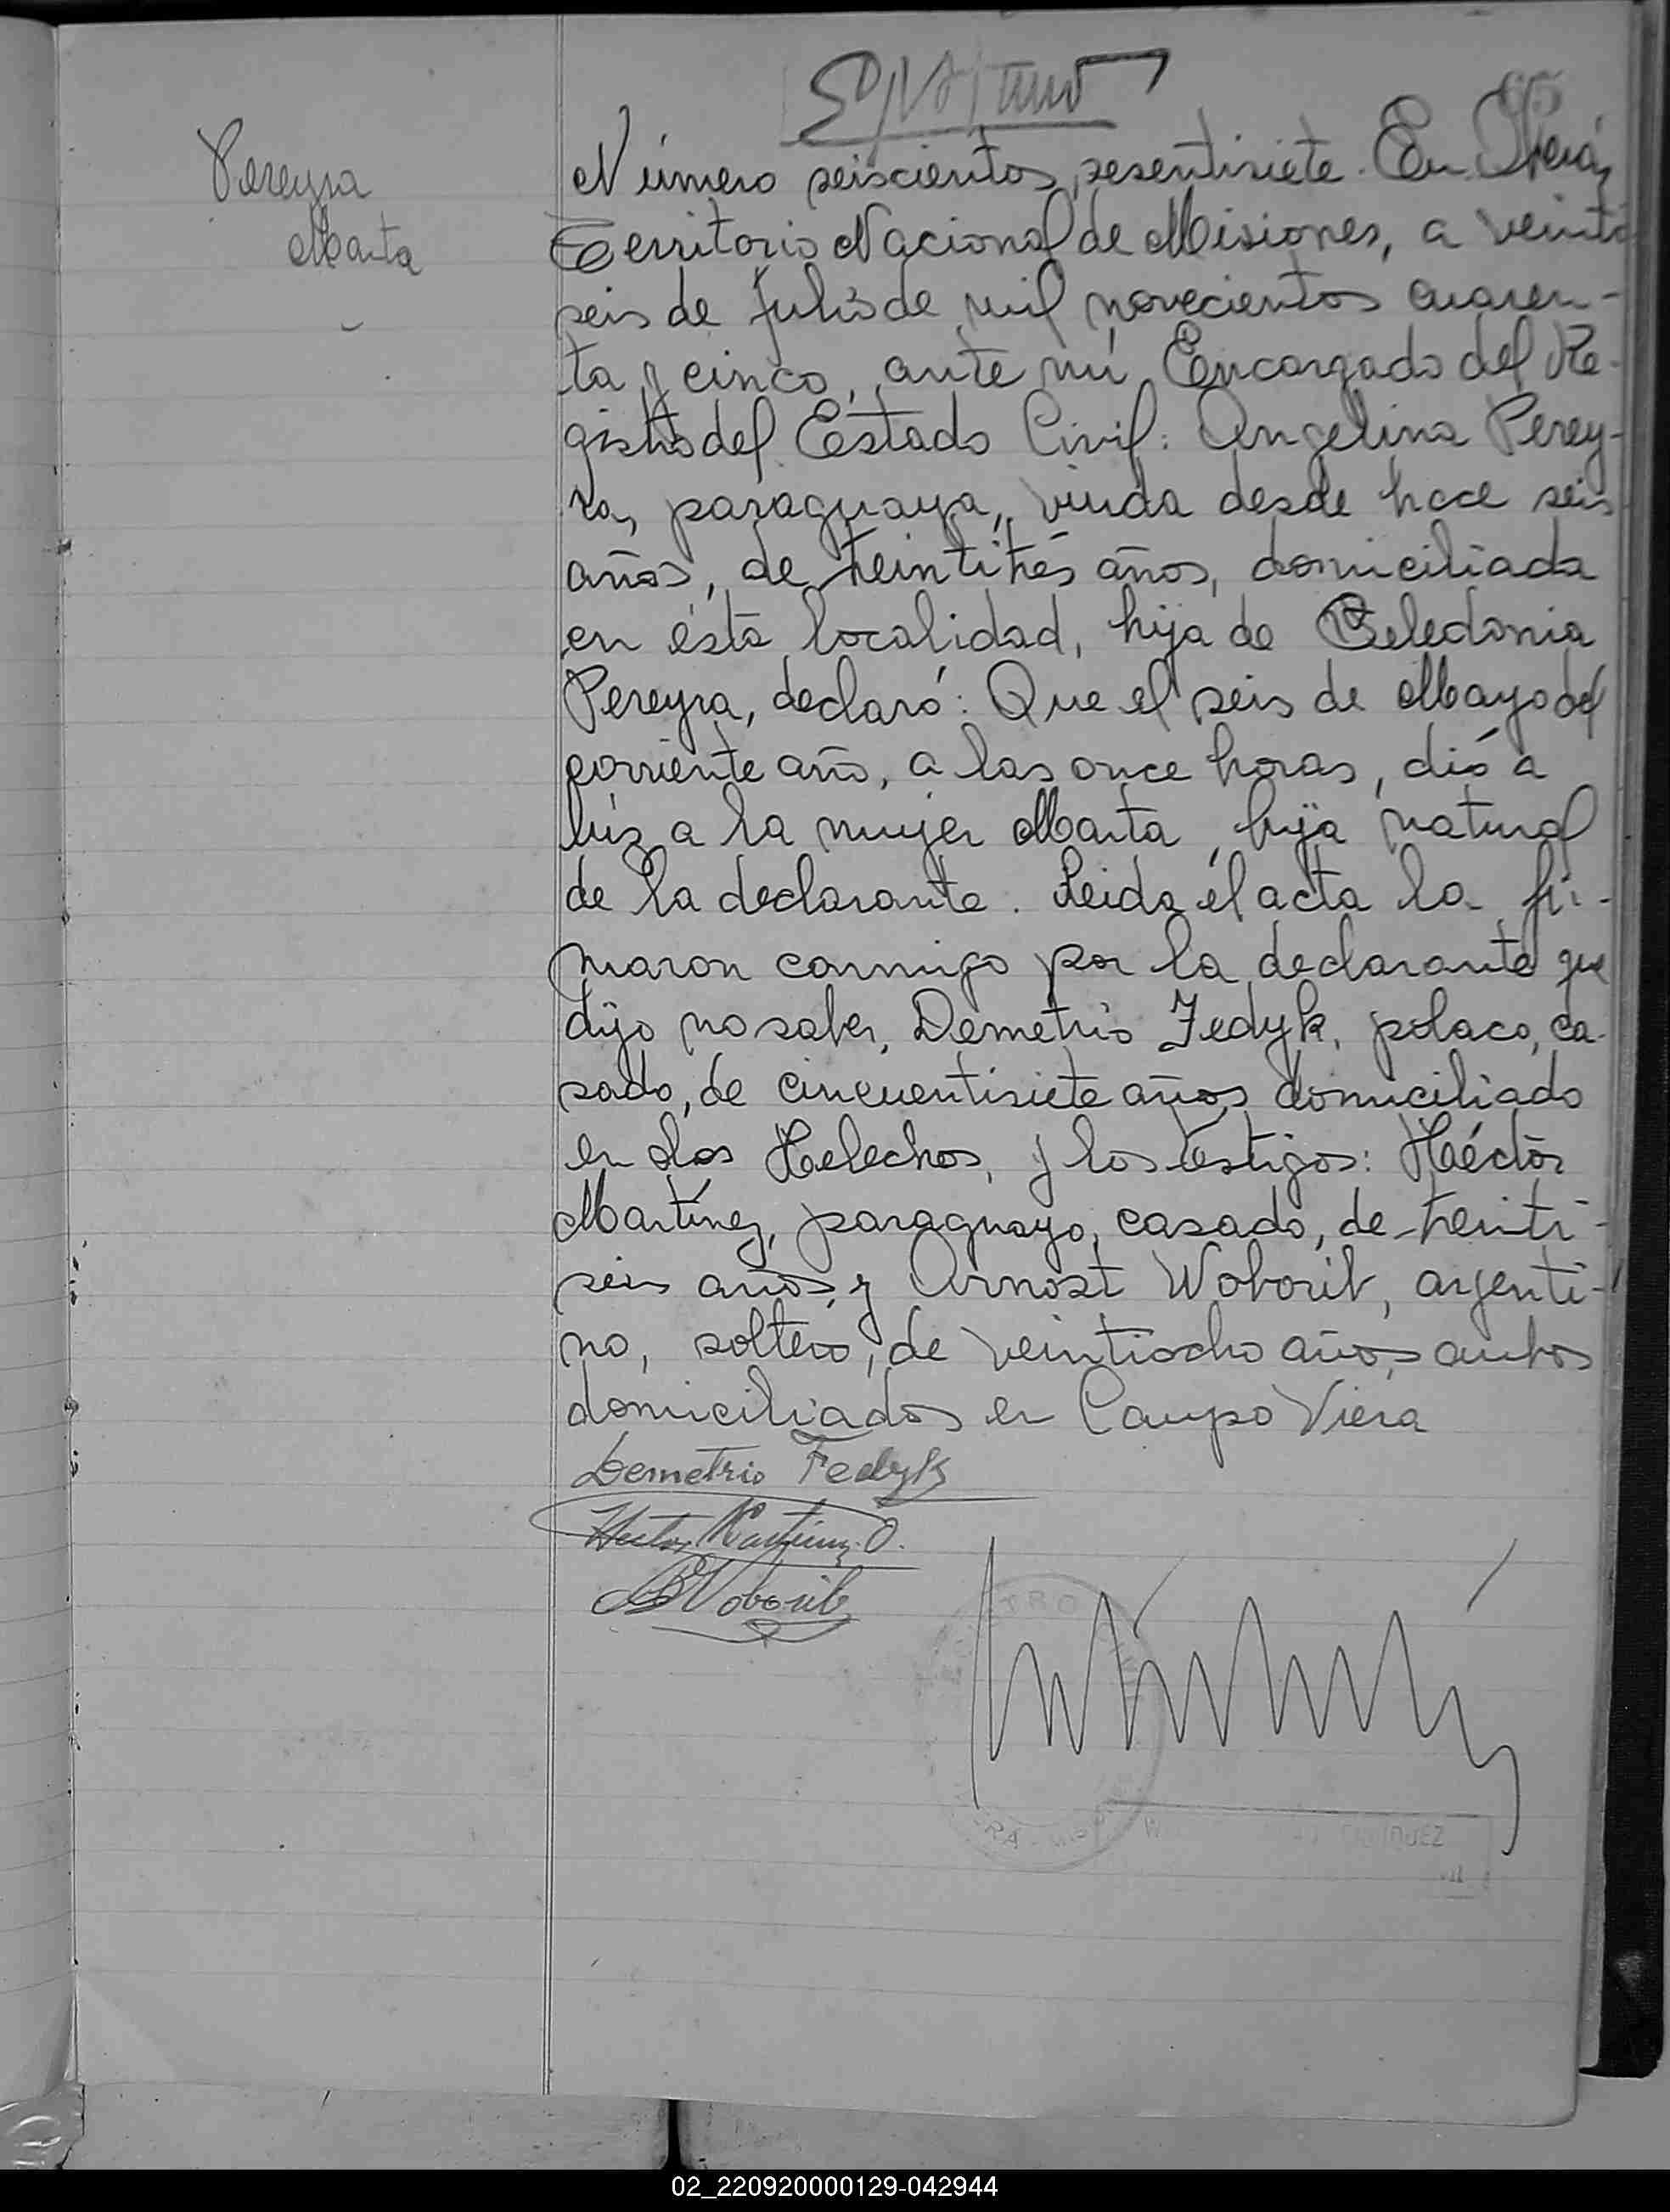 65
Pereyra
Marta
Número seiscientos sesentisiete. En Oberá,
Territorio Nacional de Misiones, a veinti
seis de Julio de mil novecientos cuaren-
ta y cinco, ante mí Encargado del Re-
gistro del Estado Civil: Angelina Perey-
ra, paraguaya, viuda desde hace seis
años, de treintitrés años, domiciliada
en ésta localidad, hija de Celedonia
Pereyra, declaró: Que el seis de Mayo del
corriente año, a las once horas, dió a
lúz a la mujer Marta, hija natural
de la declarante. Leida el acta la fir-
maron conmigo por la declarante que
dijo no saber, Demetrio Fedyk, polaco, ca-
sado, de cincuentisiete años domiciliado
en Los Helechos, y los testigos: Héctor
Martínez, paraguayo, casado, de treinti-
seis años, y Arnost Woboril, argenti-
no, soltero, de veintiocho años, ambos
domiciliados en Campo Viera
Demetrio Fedyk
Hector Martinez O.
A Woboril
02_220920000129-042944